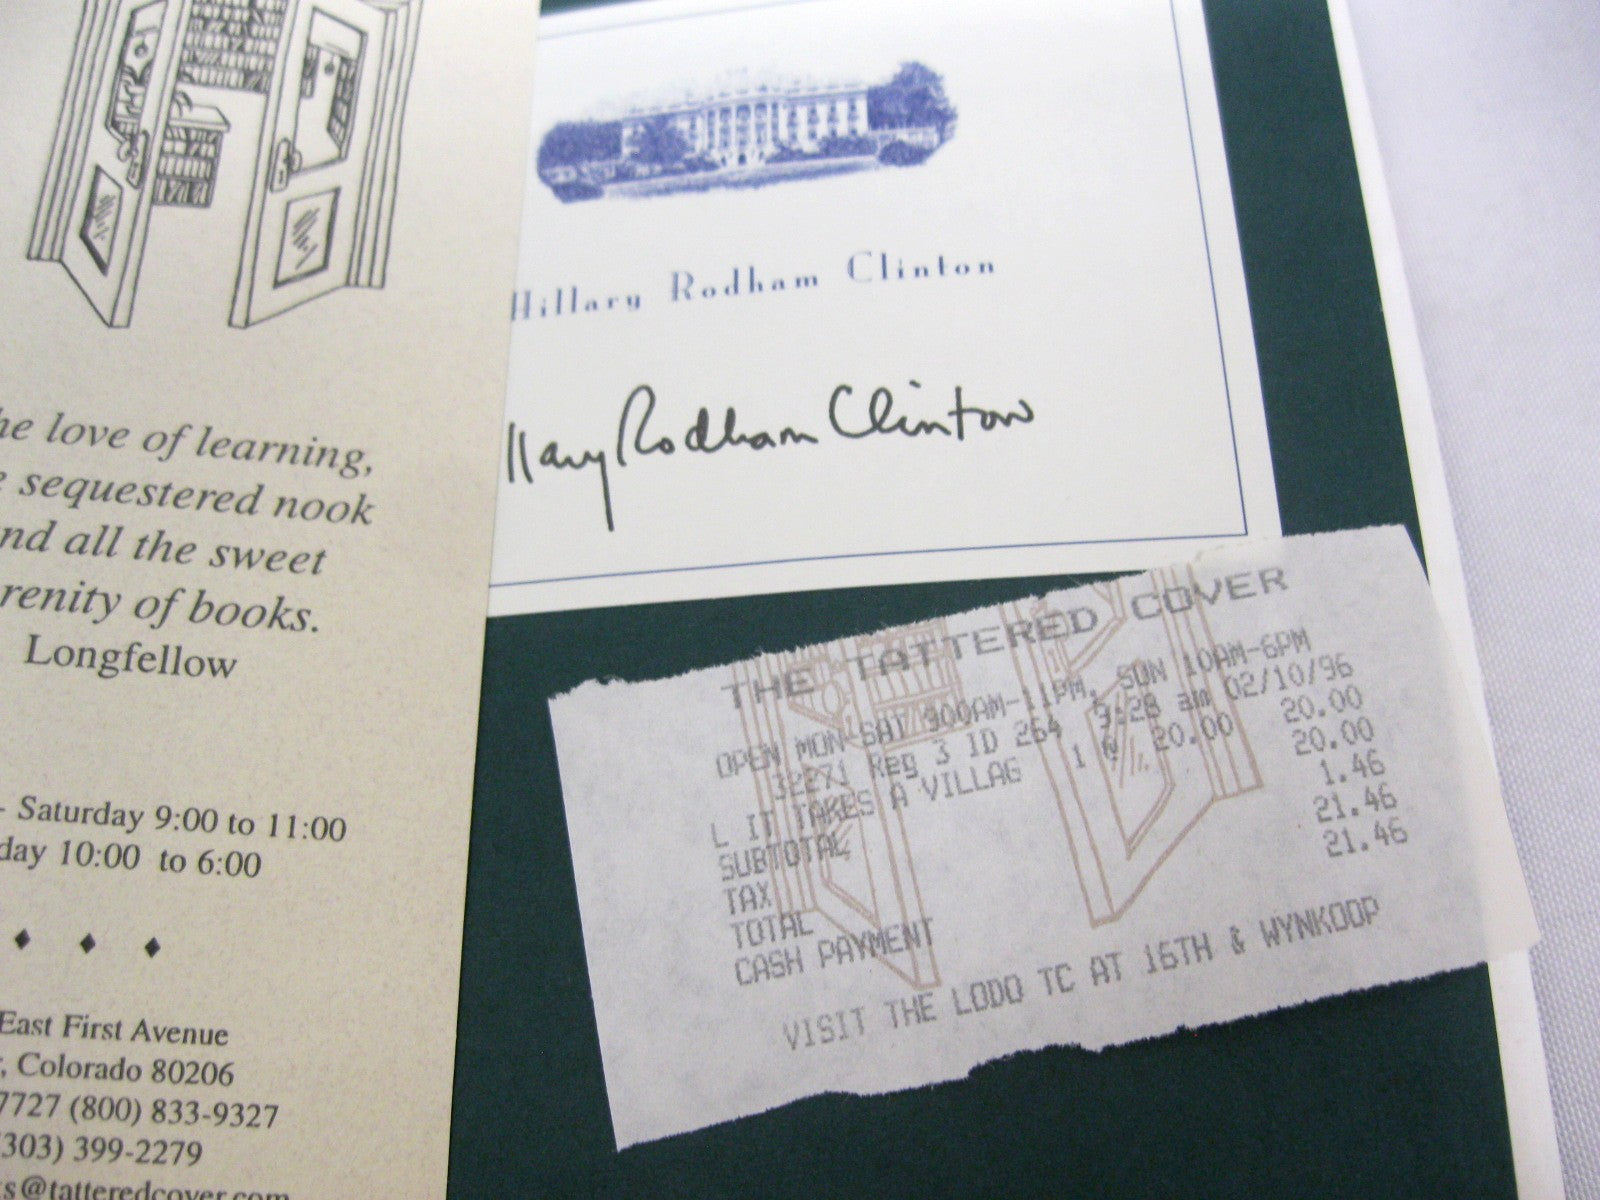 he love of learning,
sequestered nook
nd all the sweet
renity of books.
Longfellow
- Saturday 9:00 to 11:00
day 10:00 to 6:00
East First Avenue
, Colorado 80206
7727 (800) 833-9327
303) 399-2279
s@tatteredcover.com
Hillary Rodham Clinton
llary Rodham Clinton
THE TATTERED COVER
OPEN MON-SAT 900AM-11PM, SUN 10AM-6PM
32271 Reg 3 ID 264 9:28 am 02/10/96
L IT TAKES A VILLAG 1 @ 20.00 20.00
SUBTOTAL 20.00
TAX 1.46
TOTAL 21.46
CASH PAYMENT 21.46
VISIT THE LODO TC AT 16TH & WYNKOOP